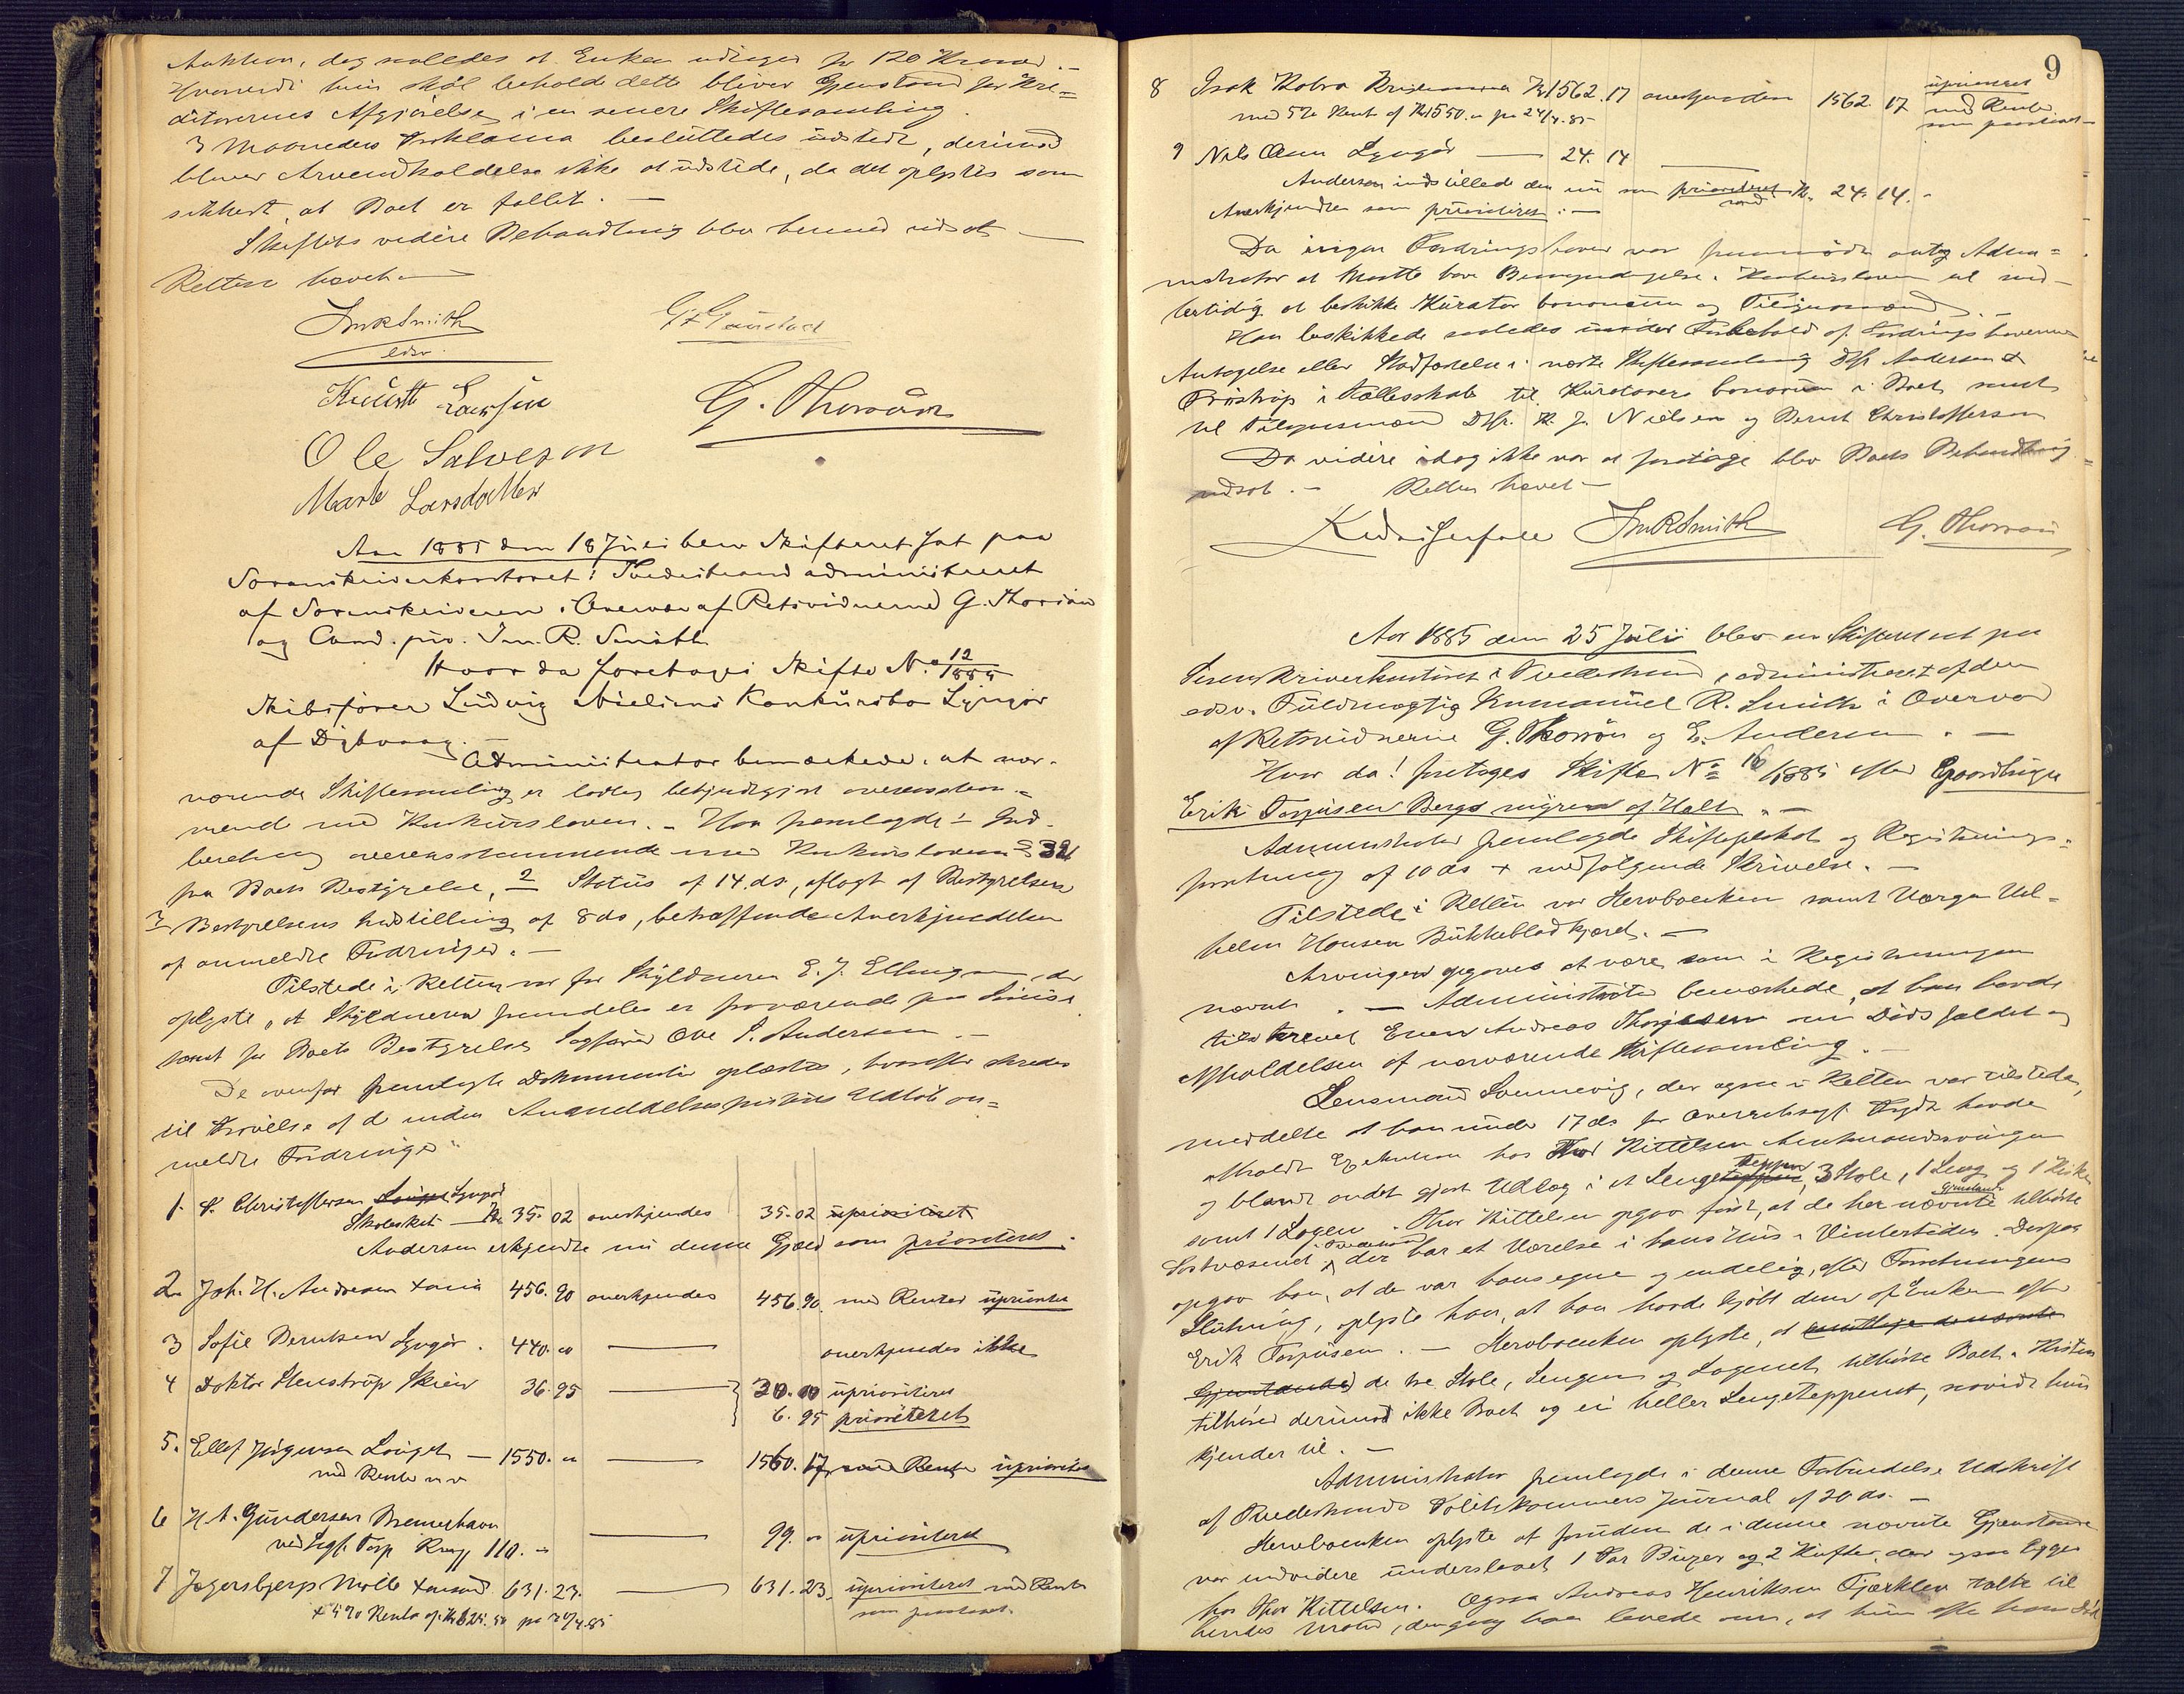 Auktion, dog saaledes at Enken udtager for 120 Kroner.-
Hvorvidt hun skal beholde dette bliver Gjenstand for Kre=
ditorernes Afgjørelse i en senere Skiftesamling.
3 Maaneders Proklama besluttedes udstedt, derimod
bliver Arveindkaldelse ikke at udstede, da det oplystes som
sikkert, at Boet er fallit. -
Skiftets videre Behandling blev hermed udsat -
Retten hævet -
ImRSmith
edsv.
G. Thorsøn
Ole Salvesen
Marte Larsdatter
Aar 1885 den 18 Juli blev Skifteret sat paa
Sorenskriverkontoret i Tvedestrand administreret
af Sorenskriveren i Overvær af Retsvidnerne G. Thorsøn
og Cand. jur. Im. R. Smith.
Hvor da foretoges Skifte No 12/1885
Skibsfører Ludvig Nielsens Konkursbo Lyngør
af Dybvaag. -
Administrator bemærkede, at nær-
værende Skiftesamling er lovlig bekjendtgjort overensstem-
mende med Konkursloven. - Han fremlagde 1 Ind-
beretning overensstemmende med Konkursloven §
fra Boets Bestyrelse, 2 Status af 14. ds., aflagt af Bestyrelsen
3 Bestyrelsens Indstilling af 8 ds, betræffende Anerkjendelsen
af anmeldte Fordringer. -
Tilstede i Retten var for Skyldneren E. J. Ellingsen, der
oplyste, at Skyldneren fremdeles er fraværende paa
samt for Boets Bestyrelse Sagfører Ove S. Andersen -
De ovenfor fremlagte Dokumenter oplæstes, hvorefter skredes
til Prøvelse af de inden Anmeldelsesfristens Udløb an=
meldte Fordringer
1. S. Christoffersen Lyngør
Skoleskat - Kr 35. 02 anerkjendes 35. 02 uprioriteret
Andersen erkjendte nu denne Gjæld som prioriteret.
2 Joh. H. Andresen Xania 456. 90 anerkjendes 456. 90 med Renter uprioritet
3 Sofie Berntsen Lyngør. 440. - anerkjendes ikke
4 Doktor Stenstrup Skien 36. 95 30. 00 uprioriteret
6. 95 prioriteret
5. Ellef Jørgensen - 1550. - 1560. 17 Rente uprioritet
med Rente
6 H. A. Gundersen Bremerhaven 99. - uprioriteret
ved Sagf. Torp 110. -
7 Jegersbergs Mølle Xansand 631. 23. 631. 23, uprioriteret med Rente
+ 5 % Rente af Kr 625. 50 fra 24/4 85 som paastaaet
9
8 Isak Kr 1562. 17 anerkjendes 1562. 17 uprioriteret
med 5 % Rente af Kr 1550. - fra 24/4. 85 med Rente
som paastaaet -
9 Nils Olsen Lyngør 24. 14
Andersen indstillede den nu som prioriteret Kr. 24. 14. -
Anerkjendtes som prioriteret. -
Da ingen Fordringshaver var fremmødt antog Admi=
nistrator at maatte have Bemyndigelse i Konkursloven til mid-
lertidig at beskikke Kurator bonorum og Tilsynsmænd. -
Han beskikkede saaledes under Forbehold af Fordringshavernes
Antagelse eller Stadfæstelse i næste Skiftesamling Dhr. Andersen &
Frøstrup i Fællesskab til Kuratorer bonorum i Boet samt
til Tilsynsmænd Dhr. N. J. Nielsen og Bernt Christoffersen
Da videre idag ikke var at foretage blev Boets Behandling
udsat. - Retten hævet -
ImRSmith G. Thorsøn
Aar 1885 den 25 Juli blev en Skifteret sat paa
Sorenskriverkontoret i Tvedestrand, administreret af den
edsv. Fuldmægtig Immanuel R. Smith i Overvær
af Retsvidnerne G. Thorsøn og E. Andersen. -
Hvor da! foretoges Skifte No 16/1885 efter Gaardbruger
Erik Torjusen Bergsmyren af Holt. -
Administrator fremlagde Skifteplakat og Registrerings-
forretning af 10 ds + medfølgende Skrivelse. -
Tilstede i Retten var Stervboenken samt Værge Vil-
helm Hansen Bukkebladkjæret. -
Arvingerne opgaves at være som i Registreringen
nævnt. - Administrator bemærkede, at han havde
tilskrevet Even Andreas Thorjussen om Dødsfaldet og
Afholdelsen af nærværende Skiftesamling. -
Lensmand Svennevig, der ogsaa i Retten var tilstede,
meddelte at han under 17 ds for Overretssagf. havde
afholdt Exekution hos Thor Kittelsen
og blandt andet gjort Udlæg i et Sengeteppe, 3 Stole, 1 Seng og 1 Kiste
samt 1 Lagen. Thor Kittelsen opgav først, at de her nævnte Gjenstande tilhørte
der har et Værelse i hans Hus i Vintertiden. Derpaa
opgav han, at de var hans egne og endelig, efter Forretningens
Slutning, oplyste han, at han havde kjøbt dem af Enken efter
Erik Torjusen. - Stervboenken oplyste, at
Gjenstande de tre Stole, Sengen og Lagenet tilhørte Boet. Kisten
tilhører derimod ikke Boet og ei heller Sengeteppenet, saavidt hun
kjender til. -
Administrator fremlagde i denne Forbindelse Udskrift
af Tvedestrands Politikammers Journal af 20 ds. -
Stervboenken oplyste at foruden de i denne nævnte Gjenstande
var endvidere underslaaet 1 Par Buxer og 2 Kufter, der ogsaa ligger
hos Thor Kittelsen. Ogsaa Andreas Henriksen talte til
hendes Mand, dengang han levede om, at hun efter hans Død